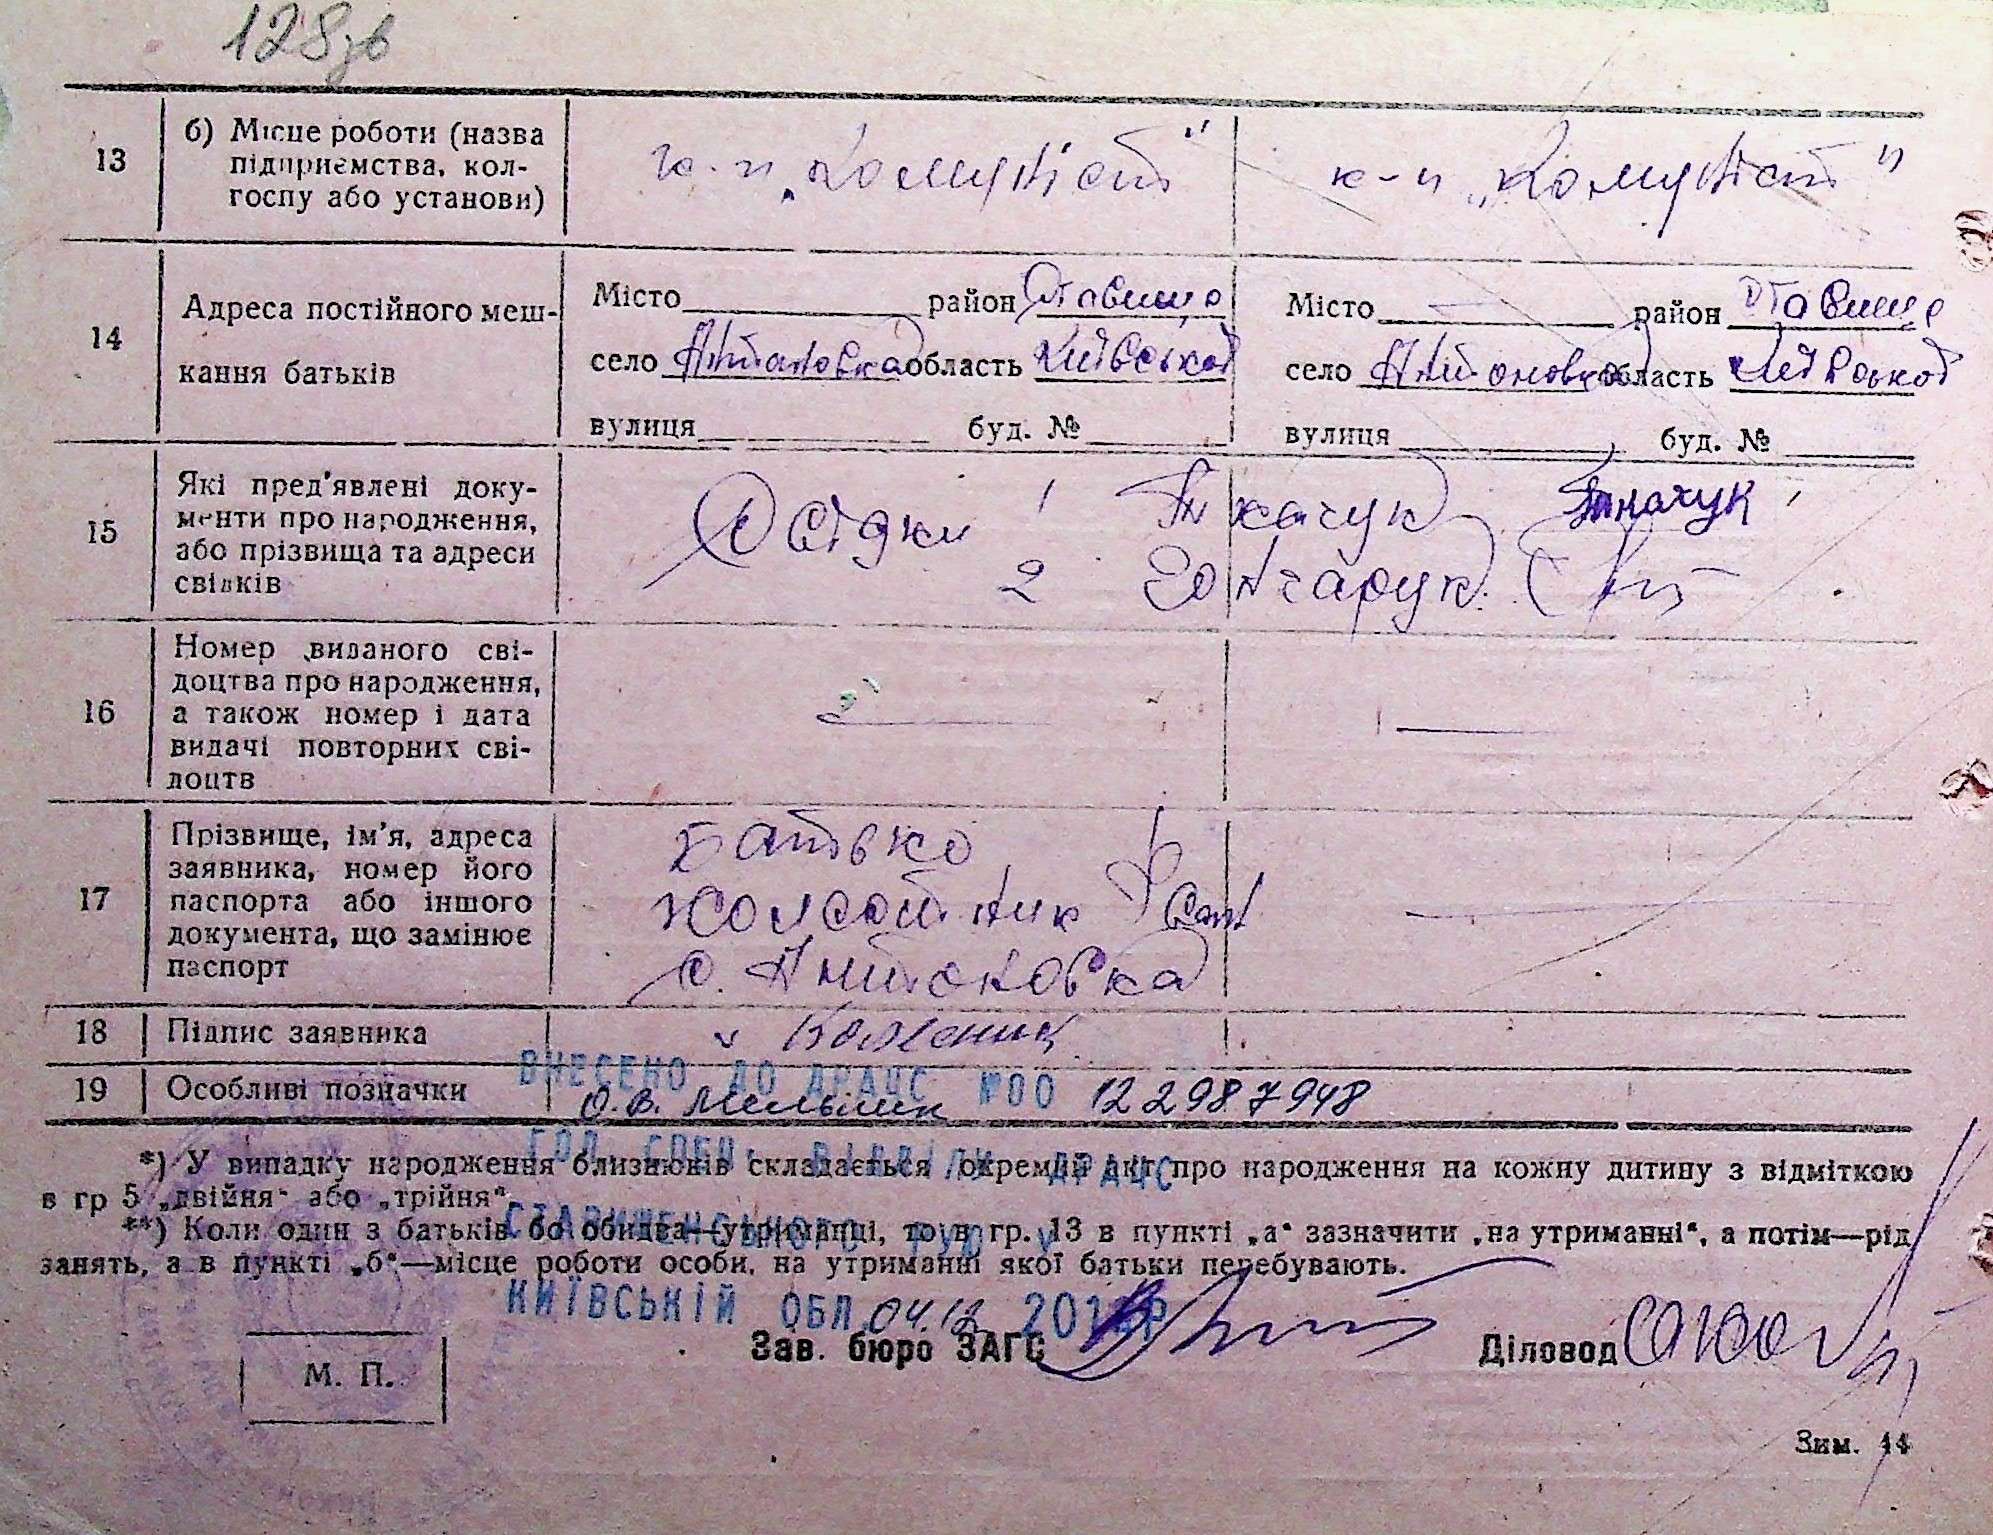 128зв
13
б) Місце роботи (назва підприємства, кол-госпу або установи)
к-п „Комуніст"
к-п „Комуніст"
14
Адреса постійного меш-кання батьків
Місто район Ставище
село Антоновка область Київської
вулиця буд. №
Місто — район Ставище
село Антоновка область Київської
вулиця буд. №
15
Які пред'явлені доку-
менти про народження,
або прізвища та адреси
свідків
Свідки 1 Ткачук Ткачук
2 Гончарук
16
Номер виданого сві-
доцтва про народження,
а також номер і дата
видачі повторних сві-
доцтв
—
—
17
Прізвище, ім'я, адреса
заявника, номер його
паспорта або іншого
документа, що замінює
паспорт
Батько
Іван
с. Антоновка
—
18 Підпис заявника
19 Особливі позначки
ВНЕСЕНО ДО ДРАЦС №00 12298 7948
О.В. Мельник
ГОЛ. СПЕЦ. ВІДДІЛУ ДРАЦС
*) У випадку народження близнюків складається окремий акт про народження на кожну дитину з відміткою
в гр 5 „двійня" або „трійня"
СТАВИЩЕНСЬКОГО РУЮ У
**) Коли один з батьків бо обидва—утриманці, то в гр. 13 в пункті „а" зазначити „на утриманні", а потім—рід
занять, а в пункті „б"—місце роботи особи, на утриманні якої батьки перебувають.
КИЇВСЬКІЙ ОБЛ. 04.12 2012Р
Зав. бюро ЗАГС
Діловод
М. П.
Зим. 44